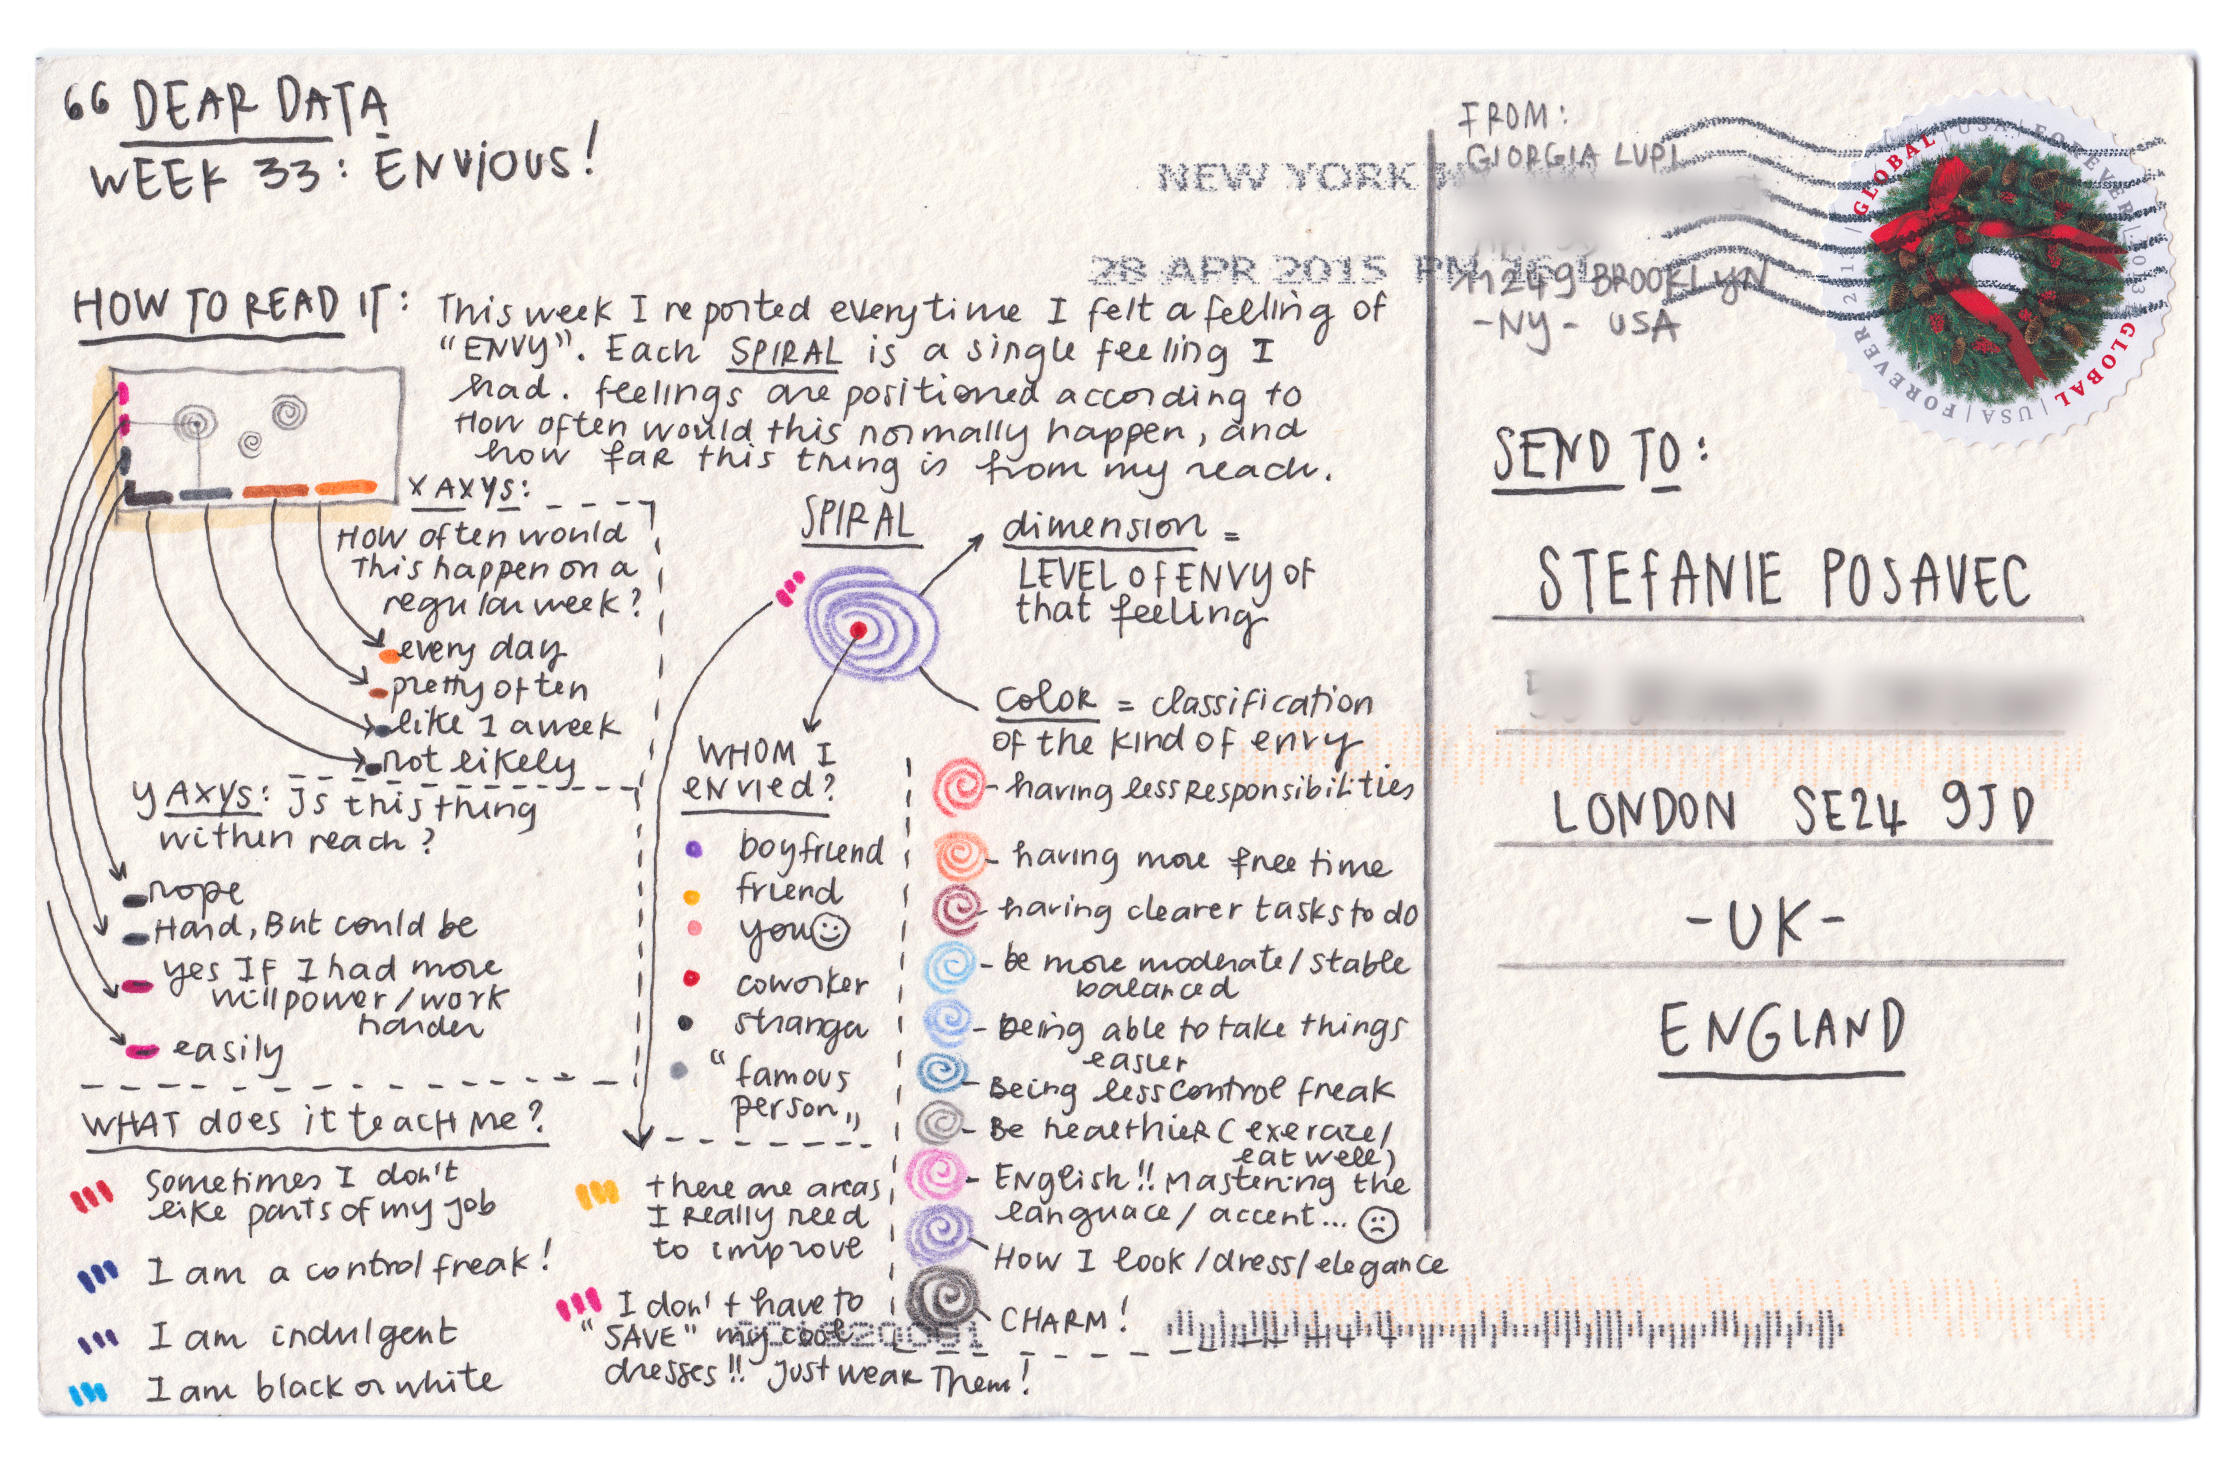 66 DEAR DATA
WEEK 33: ENVIOUS!
HOW TO READ IT:
This week I reported everytime I felt a feeling of
"ENVY". Each SPIRAL is a single feeling I
had. feelings are positioned according to
How often would this normally happen, and
how far this thing is from my reach.
X AXYS:
How often would
this happen on a
regular week?
every day
pretty often
like 1 a week
not likely
Y AXYS: Is this thing
within reach?
nope
Hard, But could be
yes IF I had more
willpower/work
harder
easily
SPIRAL
dimension =
LEVEL of ENVY of
that feeling
COLOR = classification
of the kind of envy
WHOM I
ENVIED?
boyfriend
friend
you
coworker
stranger
"famous
person"
-having less Responsibilities
- having more free time
- having clearer tasks to do
- be more moderate/stable
balanced
- being able to take things
easier
- Being less control freak
- Be healthier (exercize/
eat well)
- English!! Mastering the
languace/accent...
How I look/dress/elegance
CHARM!
WHAT does it teach Me?
Sometimes I don't
like parts of my job
I am a control freak!
I am indulgent
I am black or white
there are areas
I Really need
to improve
I don't have to
"SAVE" my cool
dresses!! Just wear Them!
NEW YORK
28 APR 2015 PM
FROM:
GIORGIA LUPI
11249 BROOKLYN
-NY- USA
GLOBAL | USA | FOREVER | 2013 | GLOBAL | USA | FOREVER 2013 |
SEND TO:
STEFANIE POSAVEC
LONDON SE24 9JD
-UK-
ENGLAND